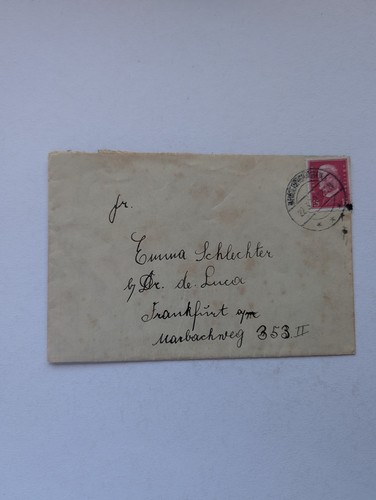 Fr.
Emma Schlechter
b/ Dr. de Luca
Frankfurt a/m
Marbachweg 353 II